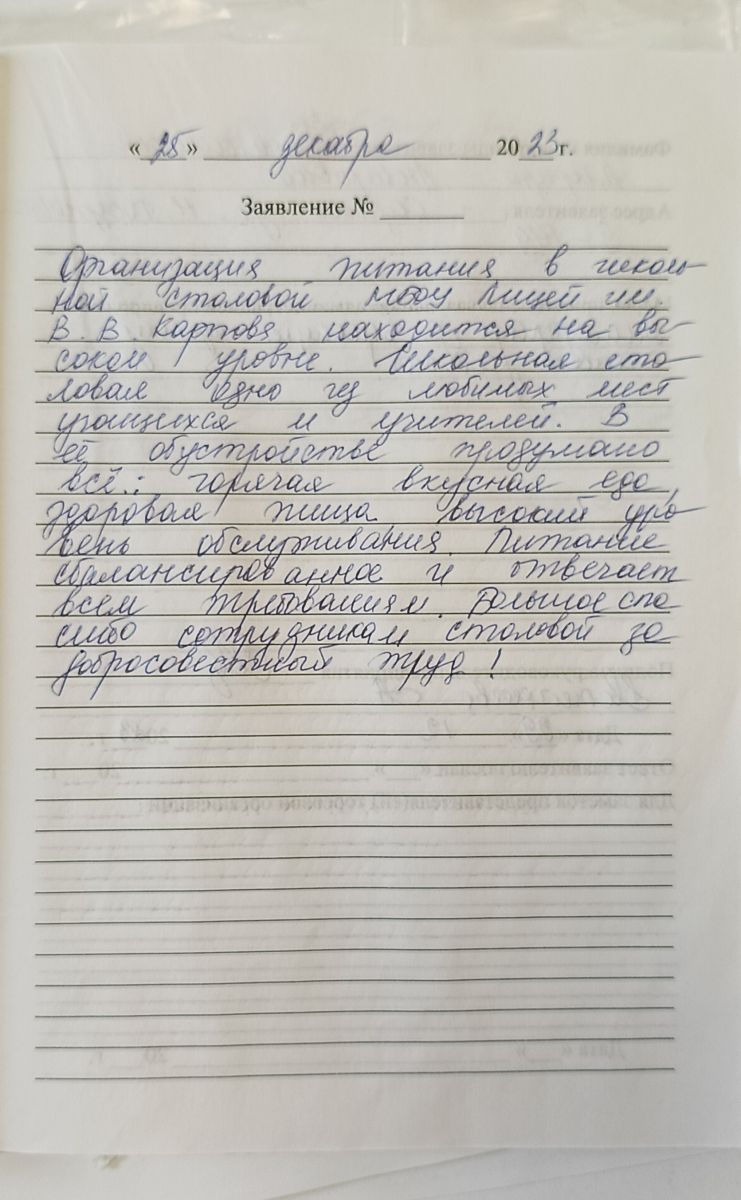 « 25 » декабря 2023 г.
Заявление №
Организация питания в школь-
ной столовой МБОУ Лицей им.
В. В. Карпова находится на вы-
соком уровне. Школьная сто-
ловая одно из любимых мест
учащихся и учителей. В
её обустройстве продумано
всё: горячая вкусная еда,
здоровая пища высокий уро-
вень обслуживания. Питание
сбалансированное и отвечает
всем требованиям. Большое спа-
сибо сотрудникам столовой за
добросовестный труд!